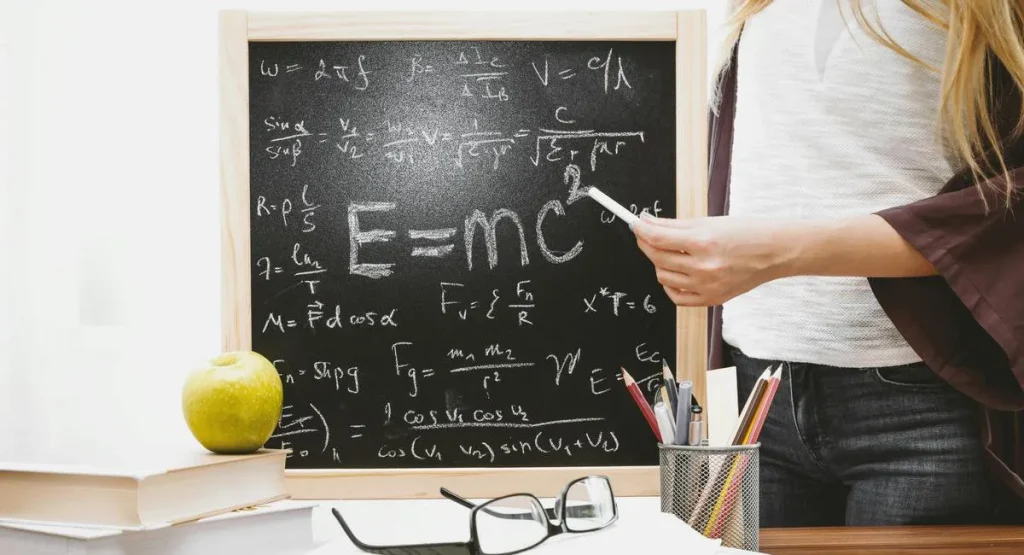 ω = 2πf β = ΔI_c / ΔI_B V = c/λ
sin α / sin β = v₁/v₂ = n₂/n₁ V = 1/√(ε_r μ_r) = c/√(ε_r μ_r)
R = ρ l/S
E = mc²
λ = ln₂/T
M = F⃗ d cos α F_v = { F_n/R x*T = 6
F_n = Shρg F_g = m₁ m₂ / r² m E_c
E =
= 1 cos v₁ cos v₂ / cos(v₁ v₂) sin(v₁ + v₂)